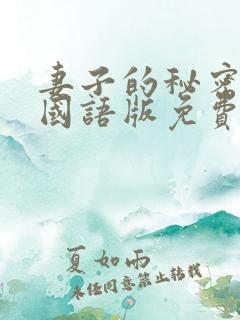 妻子的秘密
國語版免費
夏如雨
未经同意禁止转载